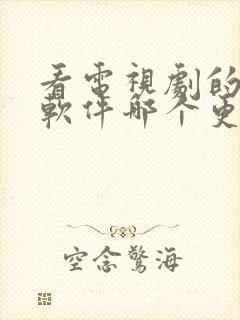 看電視劇的
軟件哪个更
空念驚海